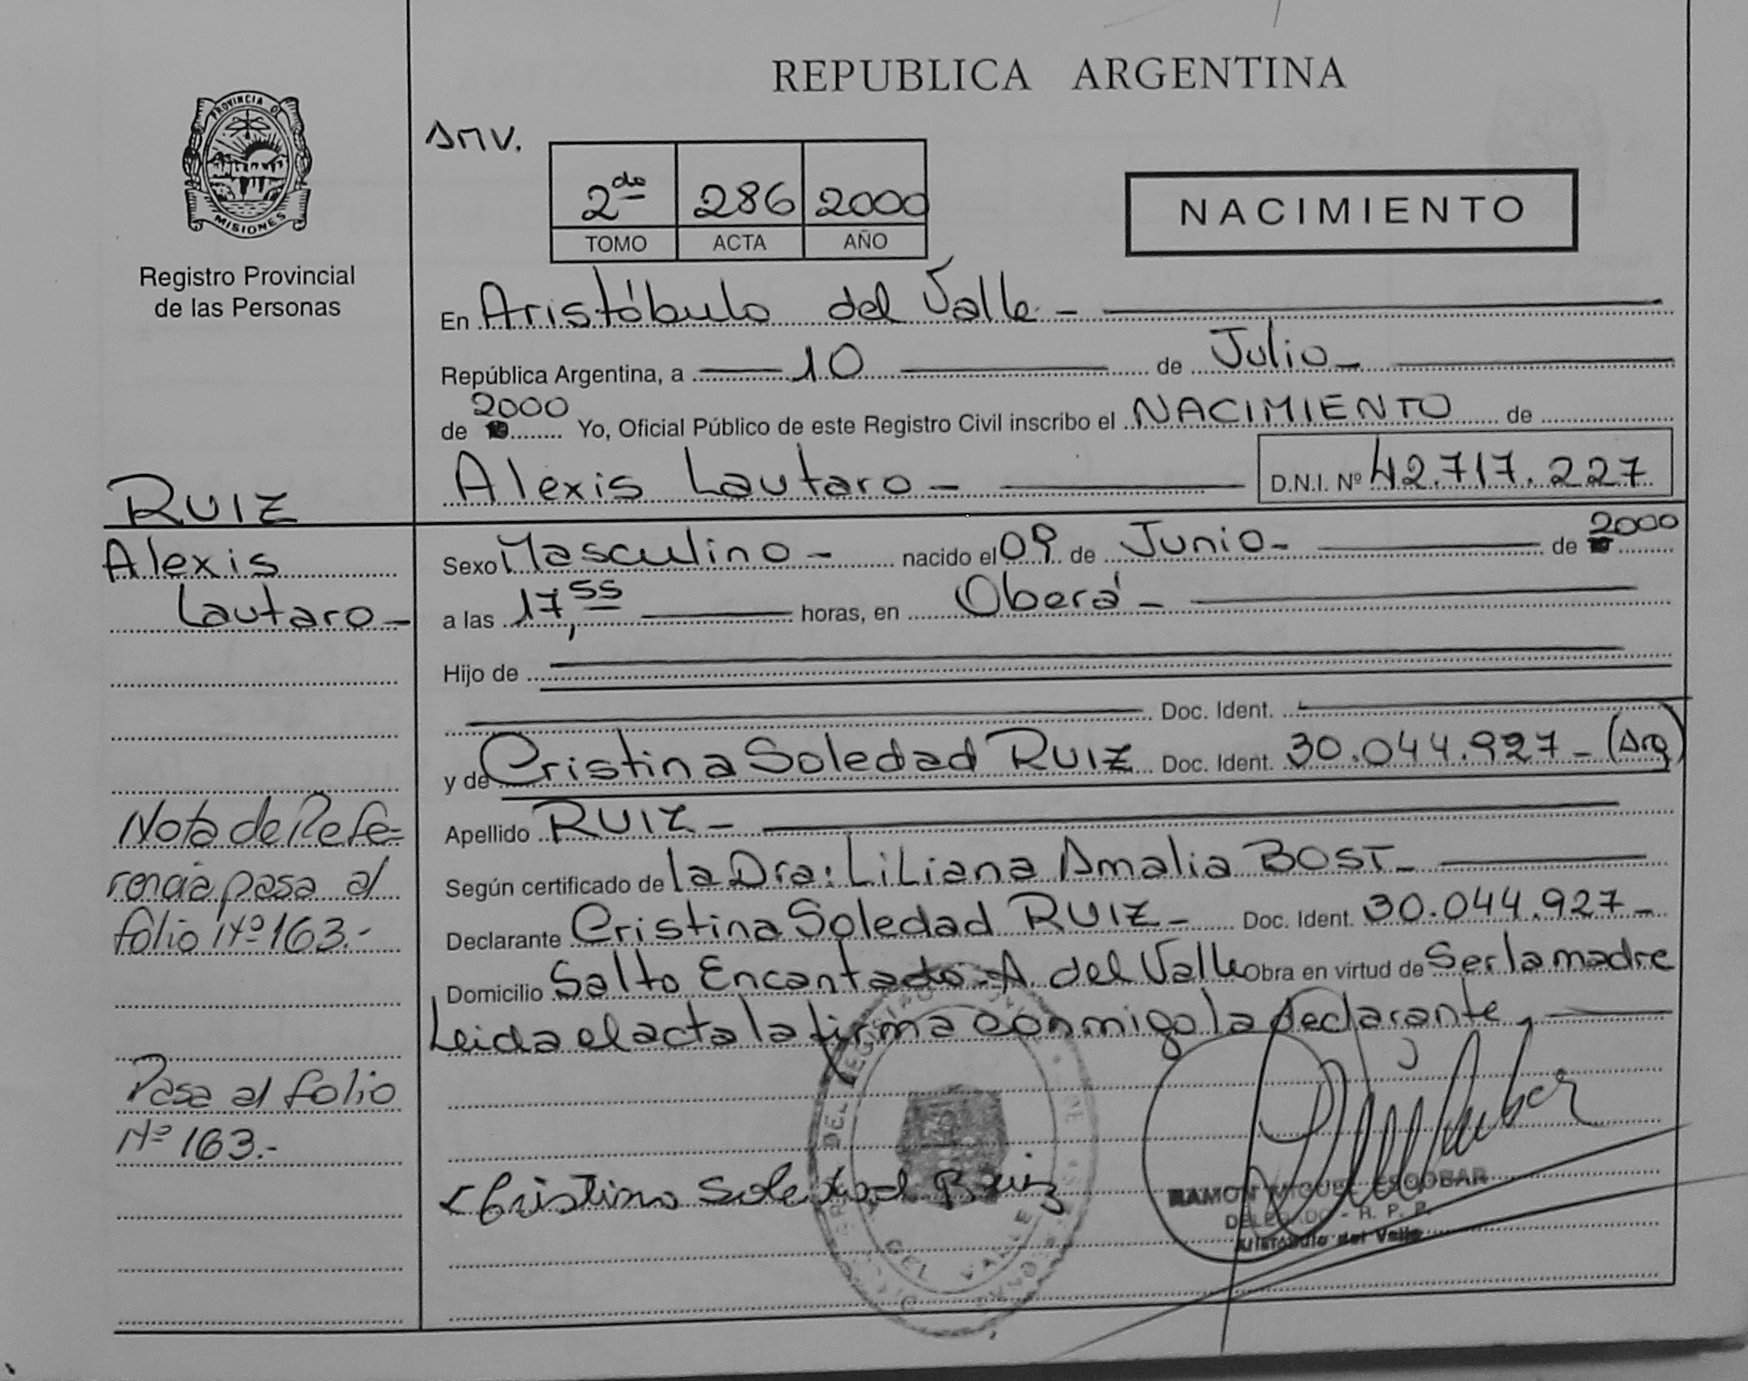 REPUBLICA ARGENTINA
PROVINCIA DE
MISIONES
Registro Provincial
de las Personas
AMV.
2do 286 2000
TOMO ACTA AÑO
NACIMIENTO
En Aristóbulo del Valle -
República Argentina, a 10 de Julio -
de 2000 Yo, Oficial Público de este Registro Civil inscribo el NACIMIENTO de
Alexis Lautaro - D.N.I. Nº 42.717.227
RUIZ
Alexis
Lautaro -
Sexo Masculino - nacido el 09 de Junio - de 2000
a las 17,55 horas, en Oberá -
Hijo de
Doc. Ident.
y de Cristina Soledad RUIZ Doc. Ident. 30.044.927 - (Arg)
Apellido RUIZ -
Según certificado de la Dra: Liliana Amalia BOST -
Declarante Cristina Soledad RUIZ - Doc. Ident. 30.044.927 -
Domicilio Salto Encantado - A. del Valle Obra en virtud de Ser la madre
Leida el acta la firma conmigo la declarante,
Nota de Refe=
rencia pasa al
folio Nº 163.-
Pasa al folio
Nº 163.-
Cristina Soledad Ruiz
RAMON MIGUEL ESCOBAR
DELEGADO - R. P. P.
Aristóbulo del Valle
DEL VALLE